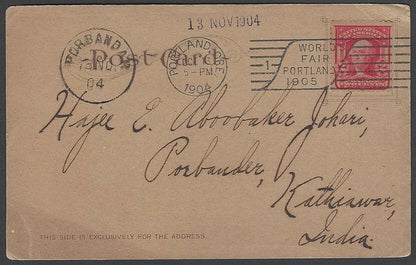 13 NOV 1904
Post Card
PORBANDAR
NO.
04
PORTLAND, ORE.
5-PM
1904
1
WORLD'S
FAIR
PORTLAND
1905
Hajee E. Aboobaker Johari,
Porbander,
Kathiawar,
India.
THIS SIDE IS EXCLUSIVELY FOR THE ADDRESS.